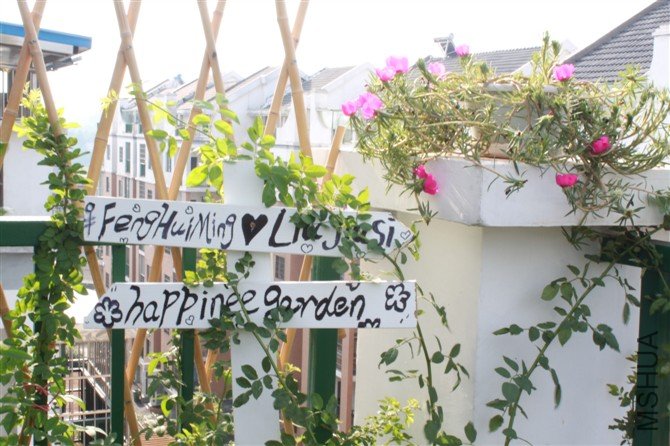 FengHuiMing ♥ LingJiaSi
happinee garden
MSHUA